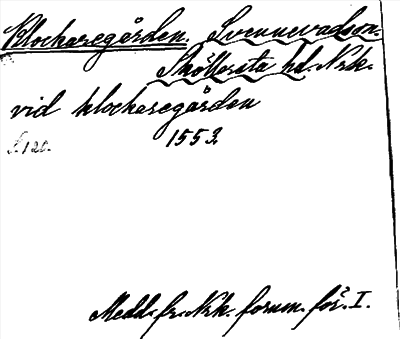 Klockaregården. Svennevadssn.
Sköllersta hd. Nrk.
vid klockaregården
S. 120. 1553
Medd. fr. Nrk. fornm. för. I.